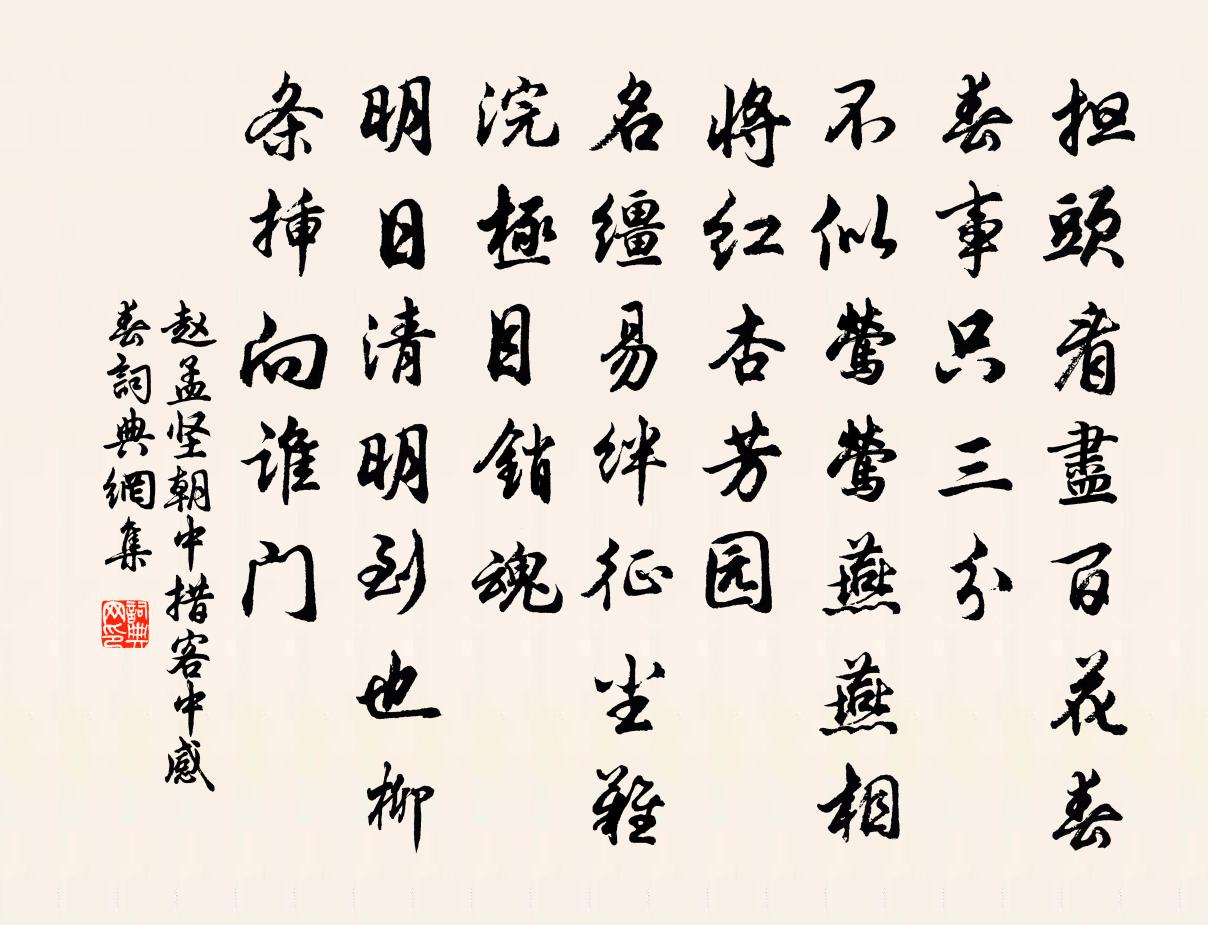 担頭看盡百花春
春事只三分
不似莺莺燕燕相
将红杏芳园
名缰易绊征尘難
浣極目銷魂
明日清明到也柳
条挿向谁门
赵孟坚朝中措客中感
春詞典網集
詞典网印